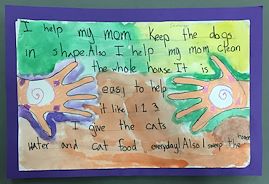 I help my mom keep the dogs
in shape. Also I help my mom clean
the whole house. It is
easy to help
it like 1 2 3
I give the cats
water and cat food everyday! Also I sweep the